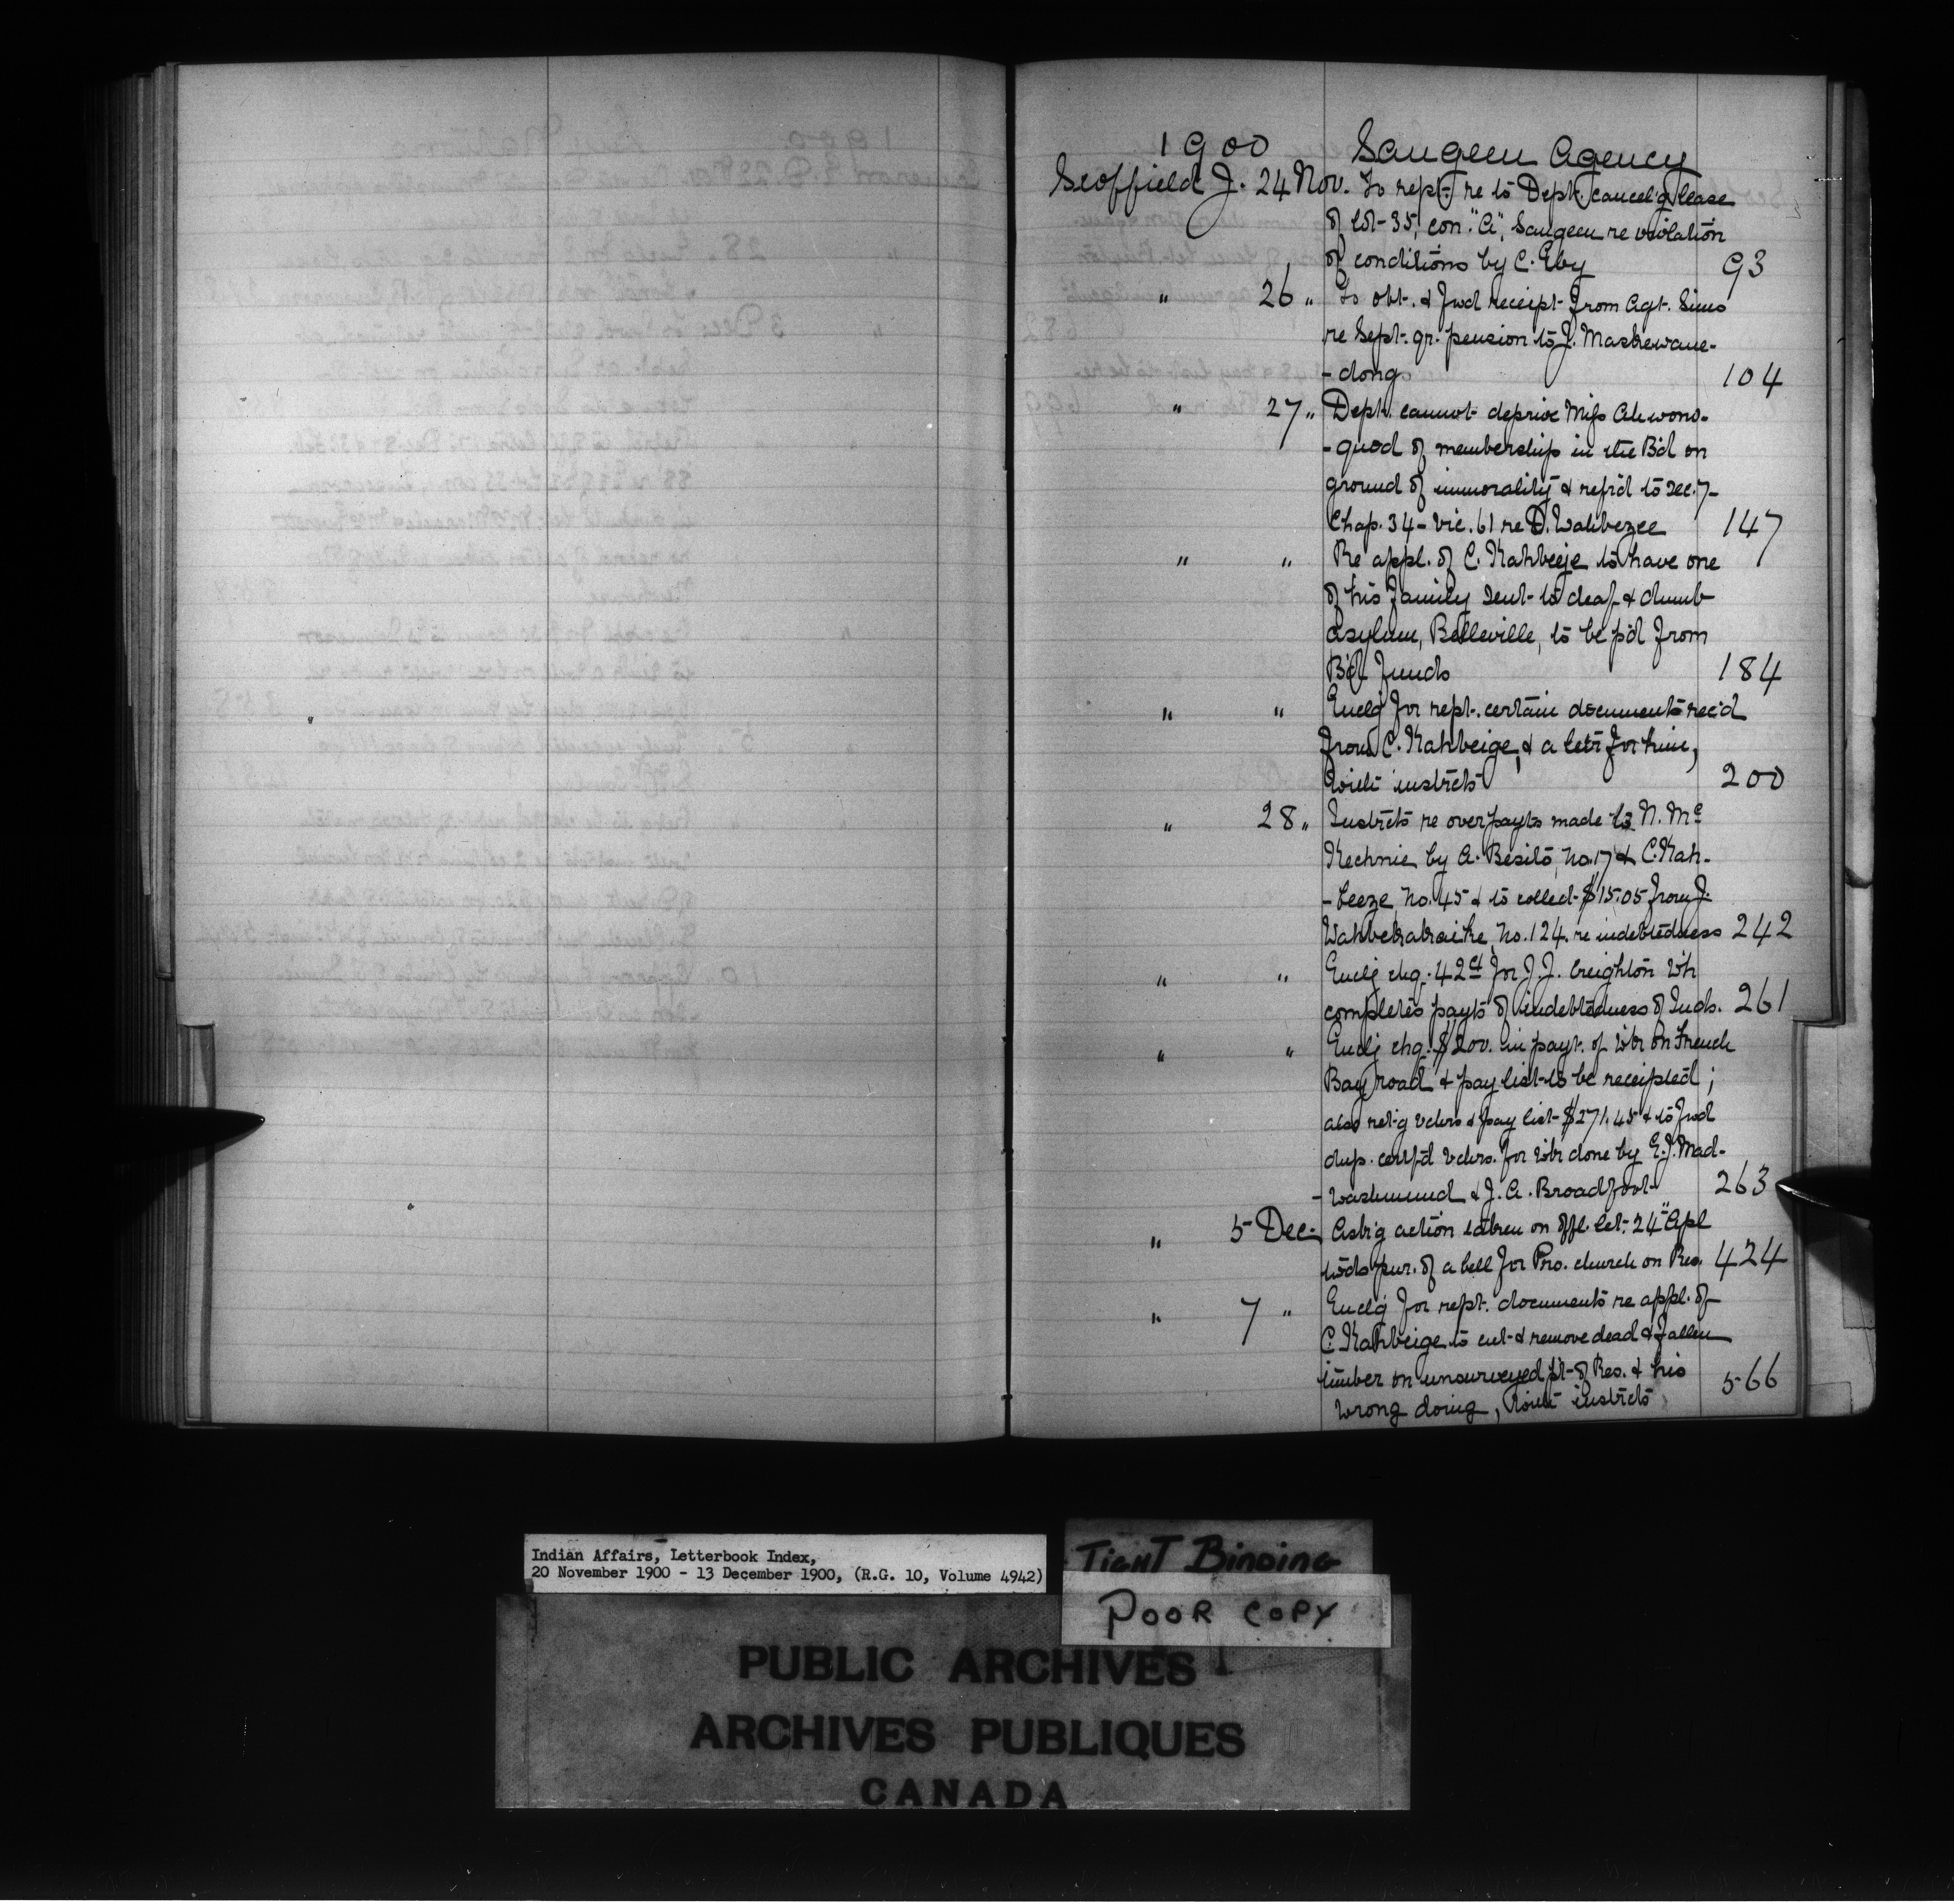 1900 Saugeen Agency
Scoffield J. 24 Nov. To rept. re to Dept. cancel'g lease
of lot 35, con. "A", Saugeen re violation
of conditions by C. Eby 93
" 26 " To obt. & fwd receipt from Agt. Sims
re Sept. qr. pension to J. Mashewane-
-dong 104
" 27 " Dept. cannot deprive Miss Ahwons-
-quod of membership in the B'd on
ground of immorality & ref'd to Sec. 7-
Chap. 34 - Vic. 61 re D. Wahbezee 147
" " Re appl. of C. Kahbeeje to have one
of his family sent to deaf & dumb
asylum, Belleville, to be p'd from
B'd funds 184
" " Encl'g for rept. certain documents rec'd
from C. Kahbeige, & a letr for him,
with instrcts 200
" 28 " Instrcts re overpayts made to N. Mc
Kechnie by A. Besito, No. 17 & C. Kah-
-beeze No. 45 & to collect $15.05 from J.
No. 124. re indebtedness 242
" " Encl'g chq. 42 ct for J. J. Creighton wh
completes payts of indebtedness of Inds. 261
" " Encl'g chq. $200. in payt. of wk on French
Bay road & pay list to be receipted;
also ret'g vchrs & pay list $271.45 & to fwd
dup. certf'd vchrs. for wk done by E. J. Mad-
-washmund & J. A. Broadfoot 263
" 5 Dec. Ask'g action taken on offl. let. 24" Apl
twds pur. of a bell for Pro. church on Res. 424
" 7 " Encl'g for rept. documents re appl. of
C. Kahbeige to cut & remove dead & fallen
timber on unsurveyed pt. of Res. & his
wrong doing, with instrcts 566
Indian Affairs, Letterbook Index,
20 November 1900 - 13 December 1900, (R.G. 10, Volume 4942)
TIGHT BINDING
POOR COPY
PUBLIC ARCHIVES
ARCHIVES PUBLIQUES
CANADA